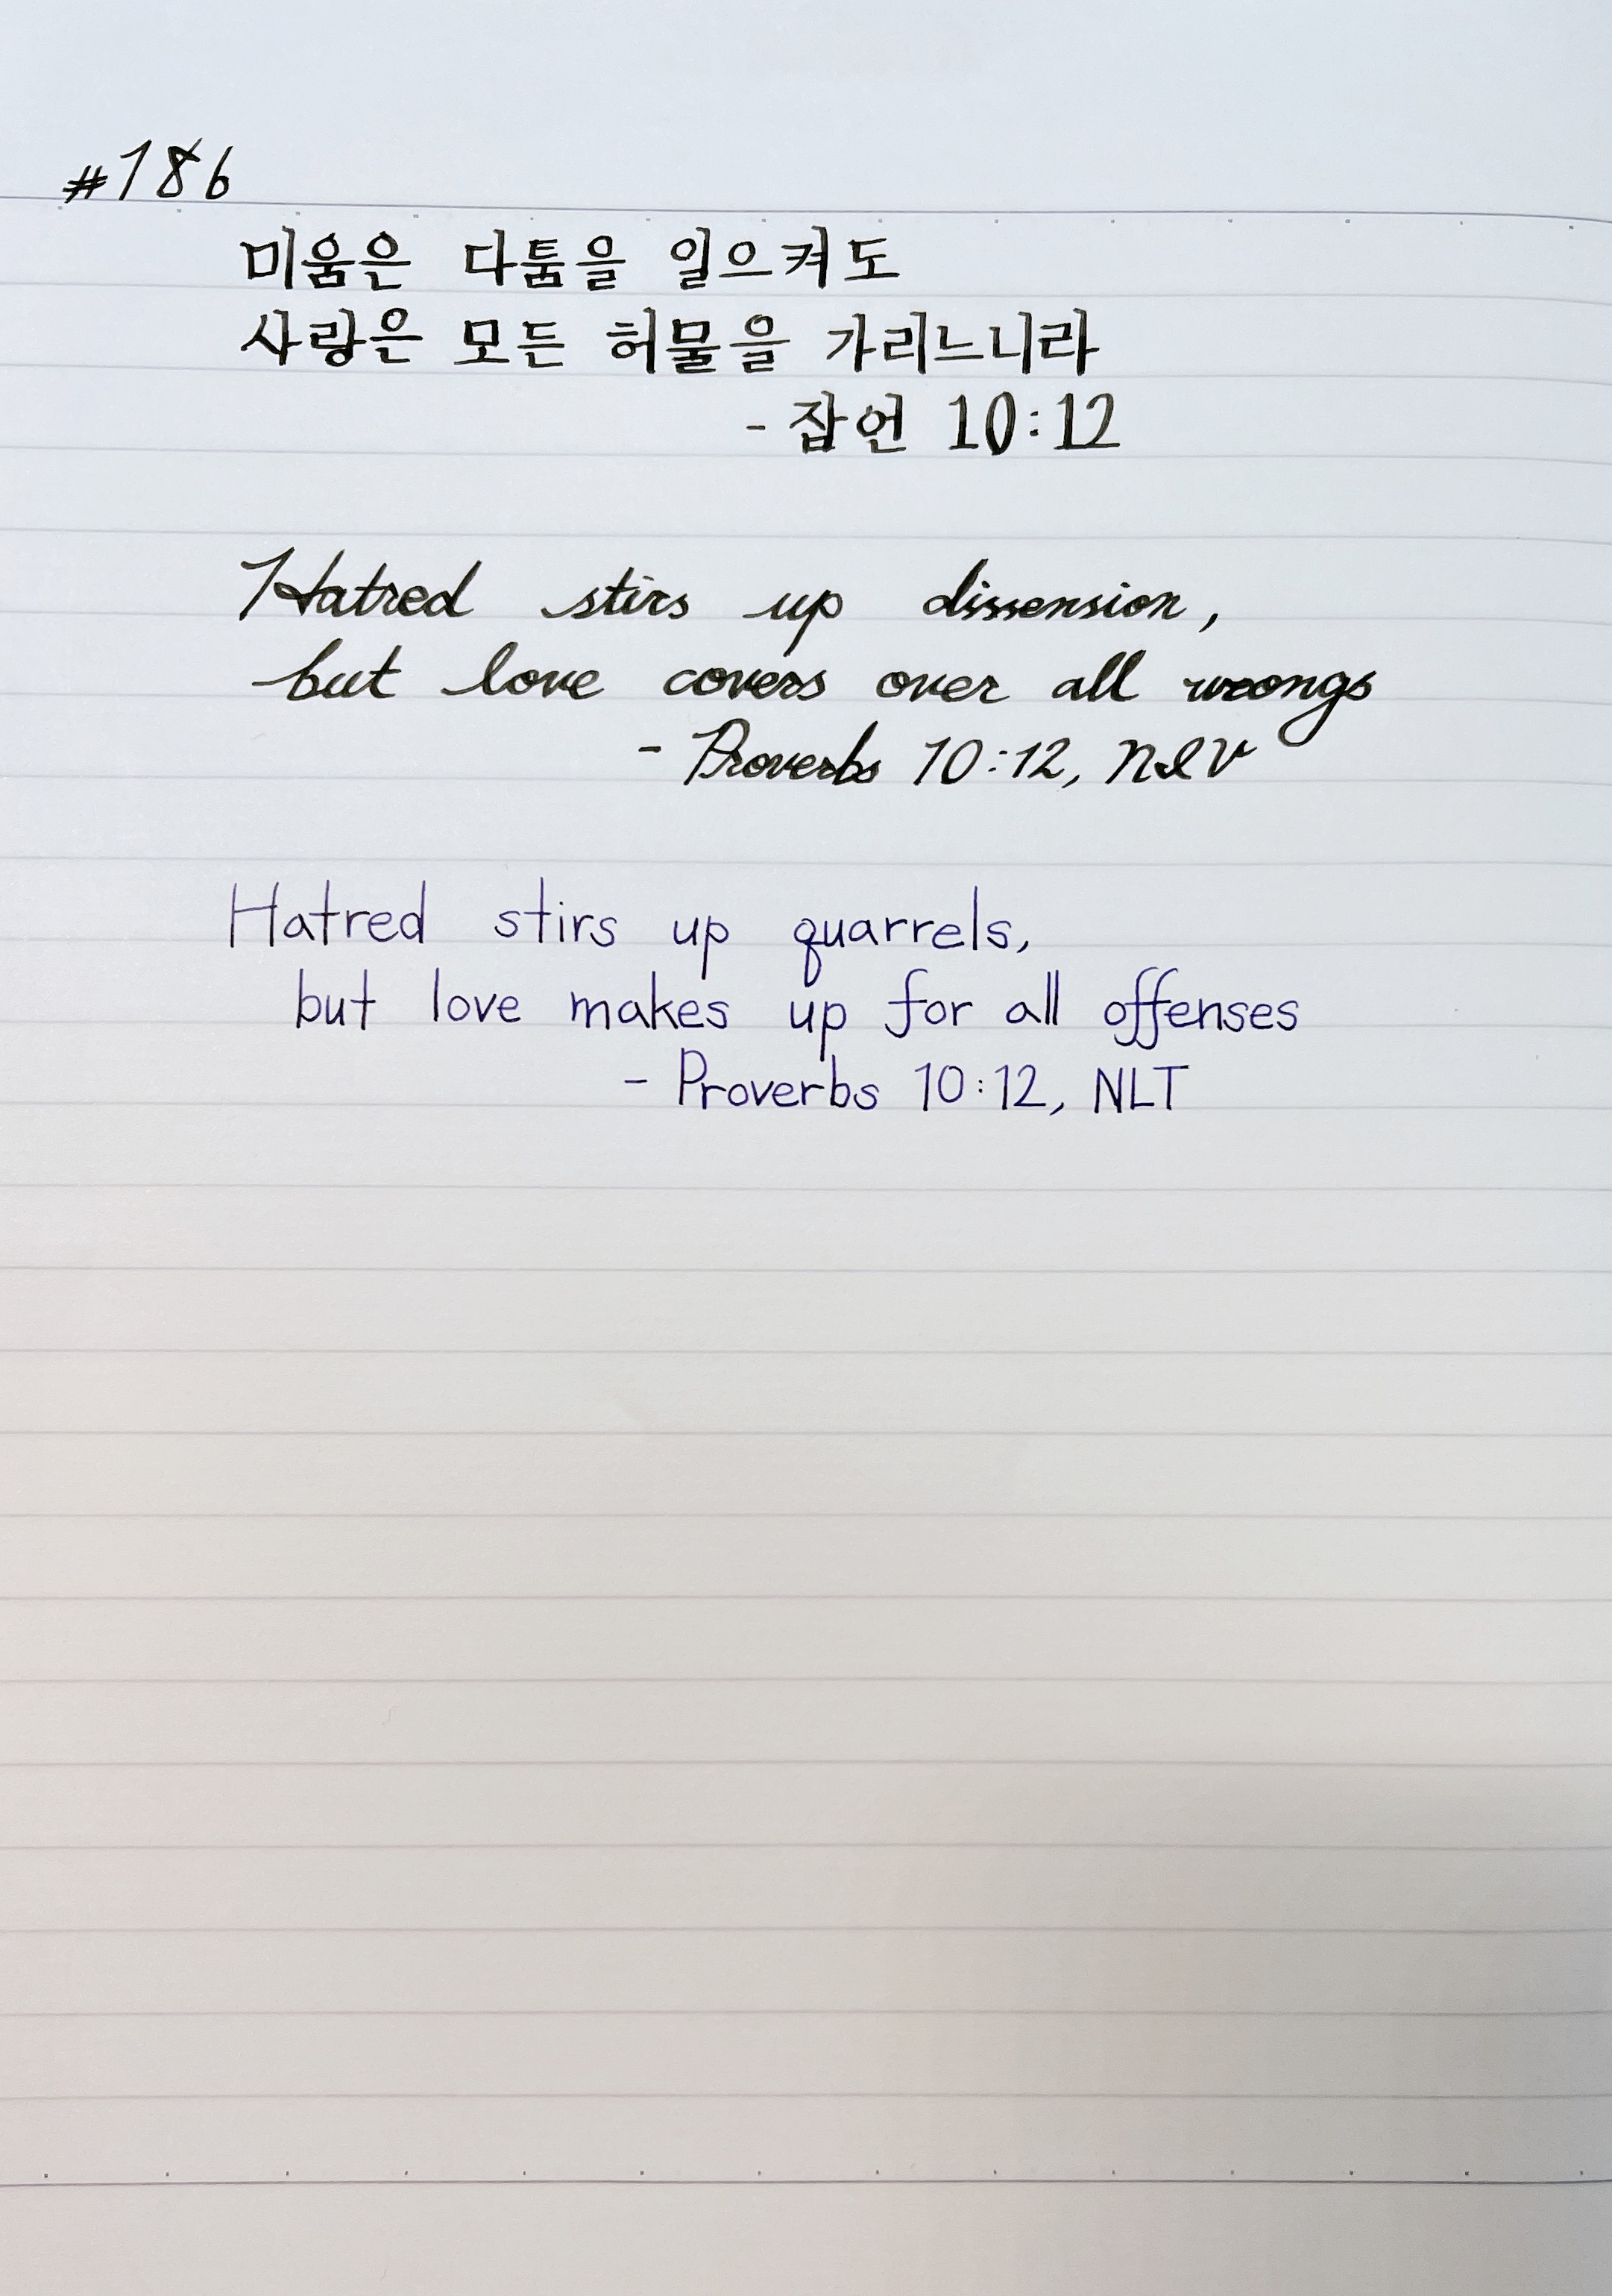 #186
미움은 다툼을 일으켜도
사랑은 모든 허물을 가리느니라
- 잠언 10:12
Hatred stirs up dissension,
but love covers over all wrongs
- Proverbs 10:12, NIV
Hatred stirs up quarrels,
but love makes up for all offenses
- Proverbs 10:12, NLT